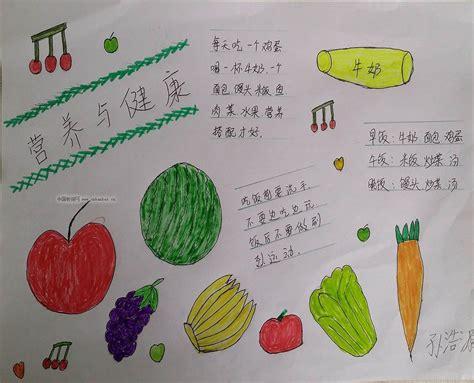 营养与健康
每天吃一个鸡蛋
喝一杯牛奶.一个
面包 馒头 米饭 鱼
肉 菜 水果 营养
搭配才好.
牛奶
早饭:牛奶 面包 鸡蛋
午饭:米饭 炒菜 汤
晚饭:馒头 炒菜 汤
吃饭前要洗手.
不要边吃边玩
饭后不要做剧
烈运动.
孙浩